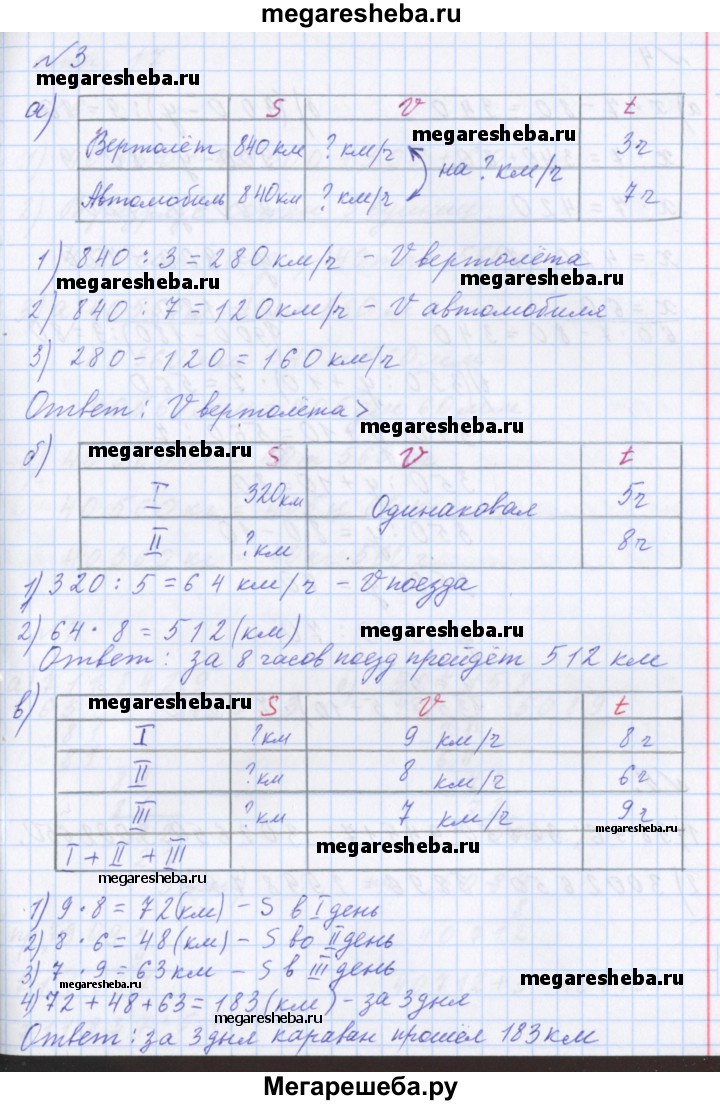 megaresheba.ru
№3
megaresheba.ru
а)
S V t
megaresheba.ru
Вертолёт 840 км ? км/ч 3 ч
на ? км/ч
Автомобиль 840 км ? км/ч 7 ч
1) 840 : 3 = 280 км/ч - V вертолёта
megaresheba.ru megaresheba.ru
2) 840 : 7 = 120 км/ч - V автомобиля
3) 280 - 120 = 160 км/ч
Ответ: V вертолёта >
megaresheba.ru
б)
megaresheba.ru
S V t
I 320 км Одинаковая 5 ч
II ? км 8 ч
1) 320 : 5 = 64 км/ч - V поезда
2) 64 · 8 = 512 (км)
megaresheba.ru
Ответ: за 8 часов поезд пройдёт 512 км
в)
megaresheba.ru
S V t
I ? км 9 км/ч 8 ч
II ? км 8 км/ч 6 ч
III ? км 7 км/ч 9 ч
megaresheba.ru
I + II + III
megaresheba.ru
megaresheba.ru
1) 9 · 8 = 72 (км) - S в I день
2) 8 · 6 = 48 (км) - S во II день
3) 7 · 9 = 63 км - S в III день
megaresheba.ru megaresheba.ru
4) 72 + 48 + 63 = 183 (км) - за 3 дня
megaresheba.ru
Ответ: за 3 дня караван прошёл 183 км
Мегарешеба.ру